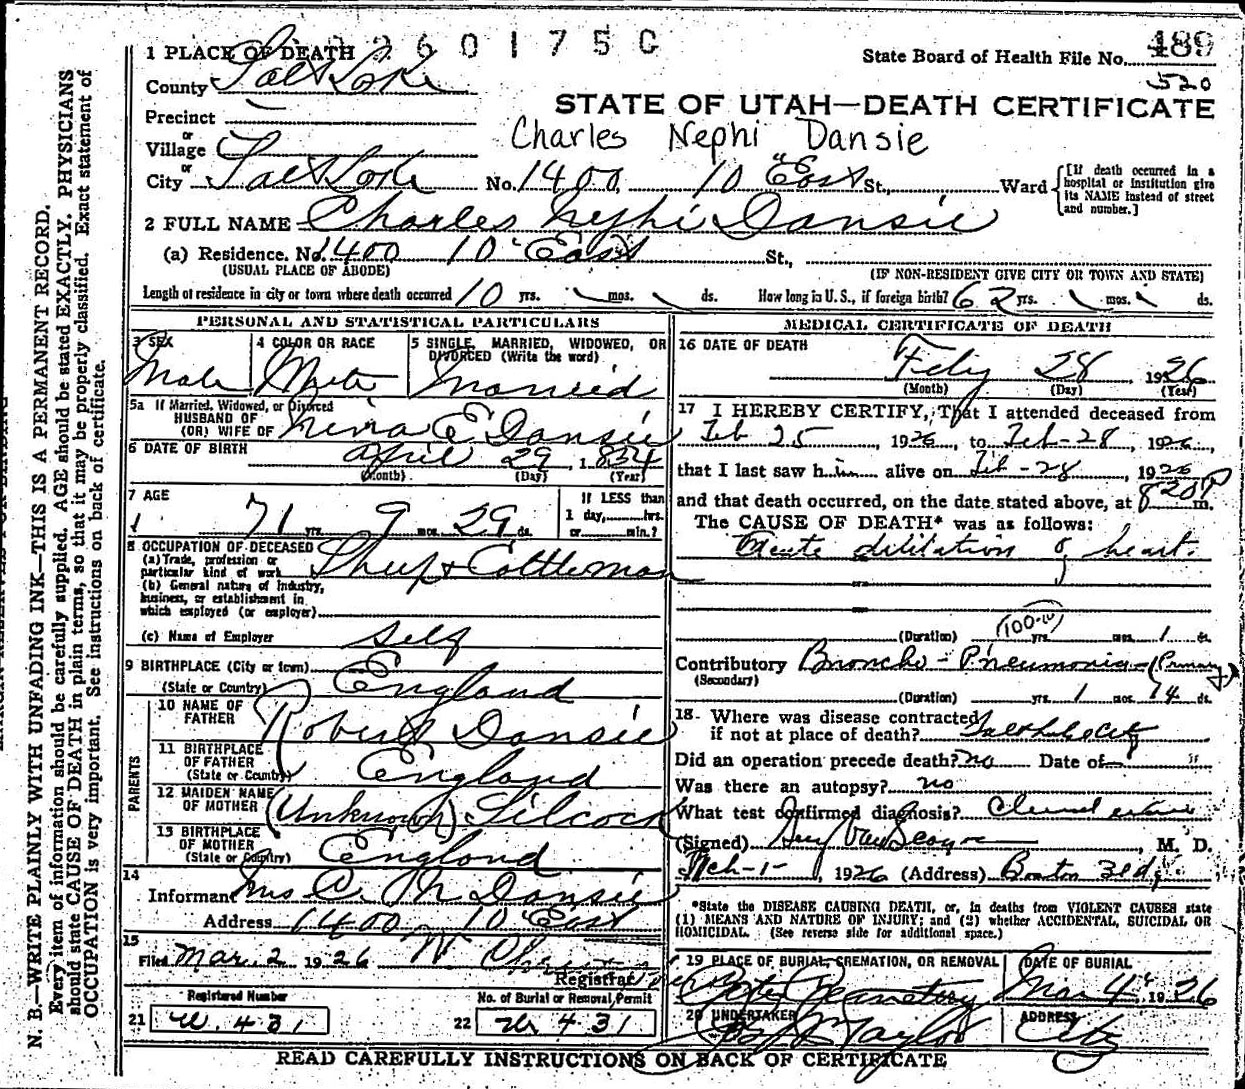 2 2 6 0 1 7 5 0
1 PLACE OF DEATH
State Board of Health File No. 489
520
County Salt Lake
STATE OF UTAH—DEATH CERTIFICATE
Precinct
Charles Nephi Dansie
or
Village
or
City Salt Lake No. 1400 10" East St., Ward
[If death occurred in a hospital or institution give its NAME instead of street and number.]
2 FULL NAME Charles Nephi Dansie
(a) Residence. No. 1400 10" East St.,
(USUAL PLACE OF ABODE) (IF NON-RESIDENT GIVE CITY OR TOWN AND STATE)
Length of residence in city or town where death occurred 10 yrs. mos. ds. How long in U. S., if foreign birth? 62 yrs. mos. ds.
PERSONAL AND STATISTICAL PARTICULARS
3 SEX
Male
4 COLOR OR RACE
White
5 SINGLE, MARRIED, WIDOWED, OR DIVORCED (Write the word)
Married
5a If Married, Widowed, or Divorced
HUSBAND OF
(OR) WIFE OF E Dansie
6 DATE OF BIRTH April 29, 1854
(Month) (Day) (Year)
7 AGE
71 yrs. 9 mos. 29 ds.
If LESS than
1 day, hrs.
or min.?
8 OCCUPATION OF DECEASED
(a) Trade, profession or
particular kind of work Sheep & Cattleman
(b) General nature of industry,
business, or establishment in
which employed (or employer)
(c) Name of Employer self
9 BIRTHPLACE (City or town)
(State or Country) England
PARENTS
10 NAME OF
FATHER Robert Dansie
11 BIRTHPLACE
OF FATHER
(State or Country) England
12 MAIDEN NAME
OF MOTHER (Unknown) Silcock
13 BIRTHPLACE
OF MOTHER
(State or Country) England
14
Informant Mrs C. N Dansie
Address 1400 10" East
15
Filed Mar. 2 1926 W.
Registrar
Registered Number
21 W. 431
No. of Burial or Removal Permit
22 W 431
MEDICAL CERTIFICATE OF DEATH
16 DATE OF DEATH
Feby 28 1926
(Month) (Day) (Year)
17 I HEREBY CERTIFY, That I attended deceased from
Feb 25, 1926, to Feb-28, 1926,
that I last saw h im alive on Feb-28, 1926
and that death occurred, on the date stated above, at 820P m.
The CAUSE OF DEATH* was as follows:
Acute dilitation of heart.
100-W
(Duration) yrs. mos. 1 ds.
Contributory Broncho-Pneumonia-(Primary)
(Secondary)
(Duration) yrs. 1 mos. 14 ds.
18. Where was disease contracted
if not at place of death? Salt Lake City
Did an operation precede death? no Date of
Was there an autopsy? no
What test confirmed diagnosis?
(Signed), M. D.
Mch-1-, 1926 (Address) Boston Bldg.
*State the DISEASE CAUSING DEATH, or, in deaths from VIOLENT CAUSES state
(1) MEANS AND NATURE OF INJURY; and (2) whether ACCIDENTAL, SUICIDAL OR
HOMICIDAL. (See reverse side for additional space.)
19 PLACE OF BURIAL, CREMATION, OR REMOVAL
City Cemetery
DATE OF BURIAL
Mar 4" 1926
20 UNDERTAKER
Taylor
ADDRESS
City
READ CAREFULLY INSTRUCTIONS ON BACK OF CERTIFICATE
N. B.—WRITE PLAINLY WITH UNFADING INK—THIS IS A PERMANENT RECORD.
Every item of information should be carefully supplied. AGE should be stated EXACTLY. PHYSICIANS
should state CAUSE OF DEATH in plain terms, so that it may be properly classified. Exact statement of
OCCUPATION is very important. See instructions on back of certificate.